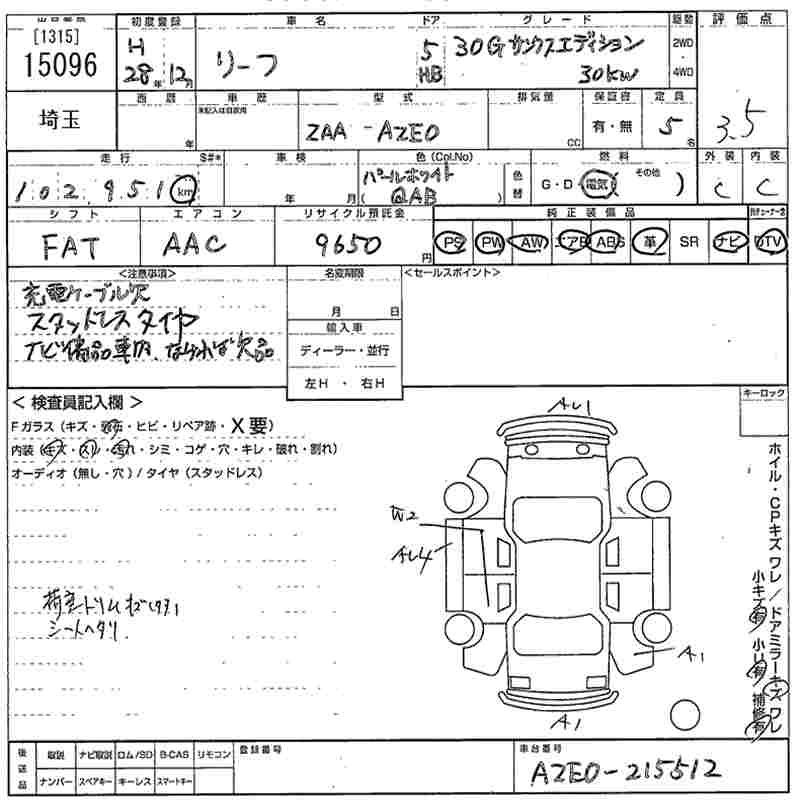 出品番号 初度登録 車名 ドア グレード 駆動 評価点
[1315] 15096
H 28年 12月
リーフ
5 HB
30G サンクスエディション 30kw
2WD ・ 4WD
3.5
埼玉
西暦 車歴 型式 排気量 保証書 定員
年 未記入は自家用 ZAA-AZEO CC 有・無 5名
走行 S#* 車検 色(Col.No) 燃料 外装 内装
102,951 km 年 月 パールホワイト (QAB) 色替 G・D・電気( その他 ) C C
シフト エアコン リサイクル預託金 純正装備品
FAT AAC 9650円 PS PW AW エアB ABS 革 SR ナビ DTV
<注意事項> 名変期限 <セールスポイント>
充電ケーブル欠
スタットレスタイヤ
ナビ備品車内、なければ欠品
月 日
輸入車
ディーラー・並行
左H ・ 右H
< 検査員記入欄 > キーロック
Fガラス(キズ・飛石・ヒビ・リペア跡・X要)
内装(キズ・スレ・汚れ・シミ・コゲ・穴・キレ・破れ・割れ)
オーディオ(無し・穴)/タイヤ(スタッドレス)
AU1
W2
AU4
A1
A1
シートヘタリ
ホイル・CPキズ ワレ/ドアミラーキズ ワレ
小キズ有 小U有 補修有
後送品 取説 ナビ取説 ロム/SD B-CAS リモコン 登録番号 車台番号
ナンバー スペアキー キーレス スマートキー
AZEO-215512